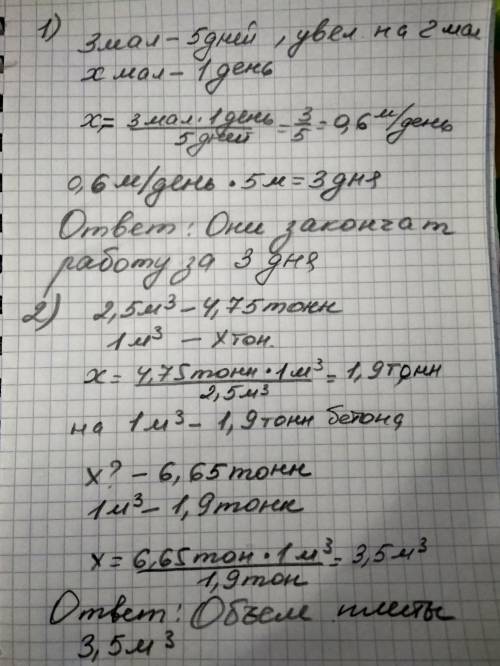 1)
3 мал – 5 дней, увел на 2 мал
х мал – 1 день
х = 3 мал · 1 день / 5 дней = 3/5 = 0,6 м/день
0,6 м/день · 5 м = 3 дня
Ответ: Они закончат
работу за 3 дня
2) 2,5 м³ – 4,75 тонн
1 м³ – х тон.
х = 4,75 тонн · 1 м³ / 2,5 м³ = 1,9 тонн
на 1 м³ – 1,9 тонн бетона
х? – 6,65 тонн
1 м³ – 1,9 тонн
х = 6,65 тон · 1 м³ / 1,9 тон = 3,5 м³
Ответ: Объем плиты
3,5 м³